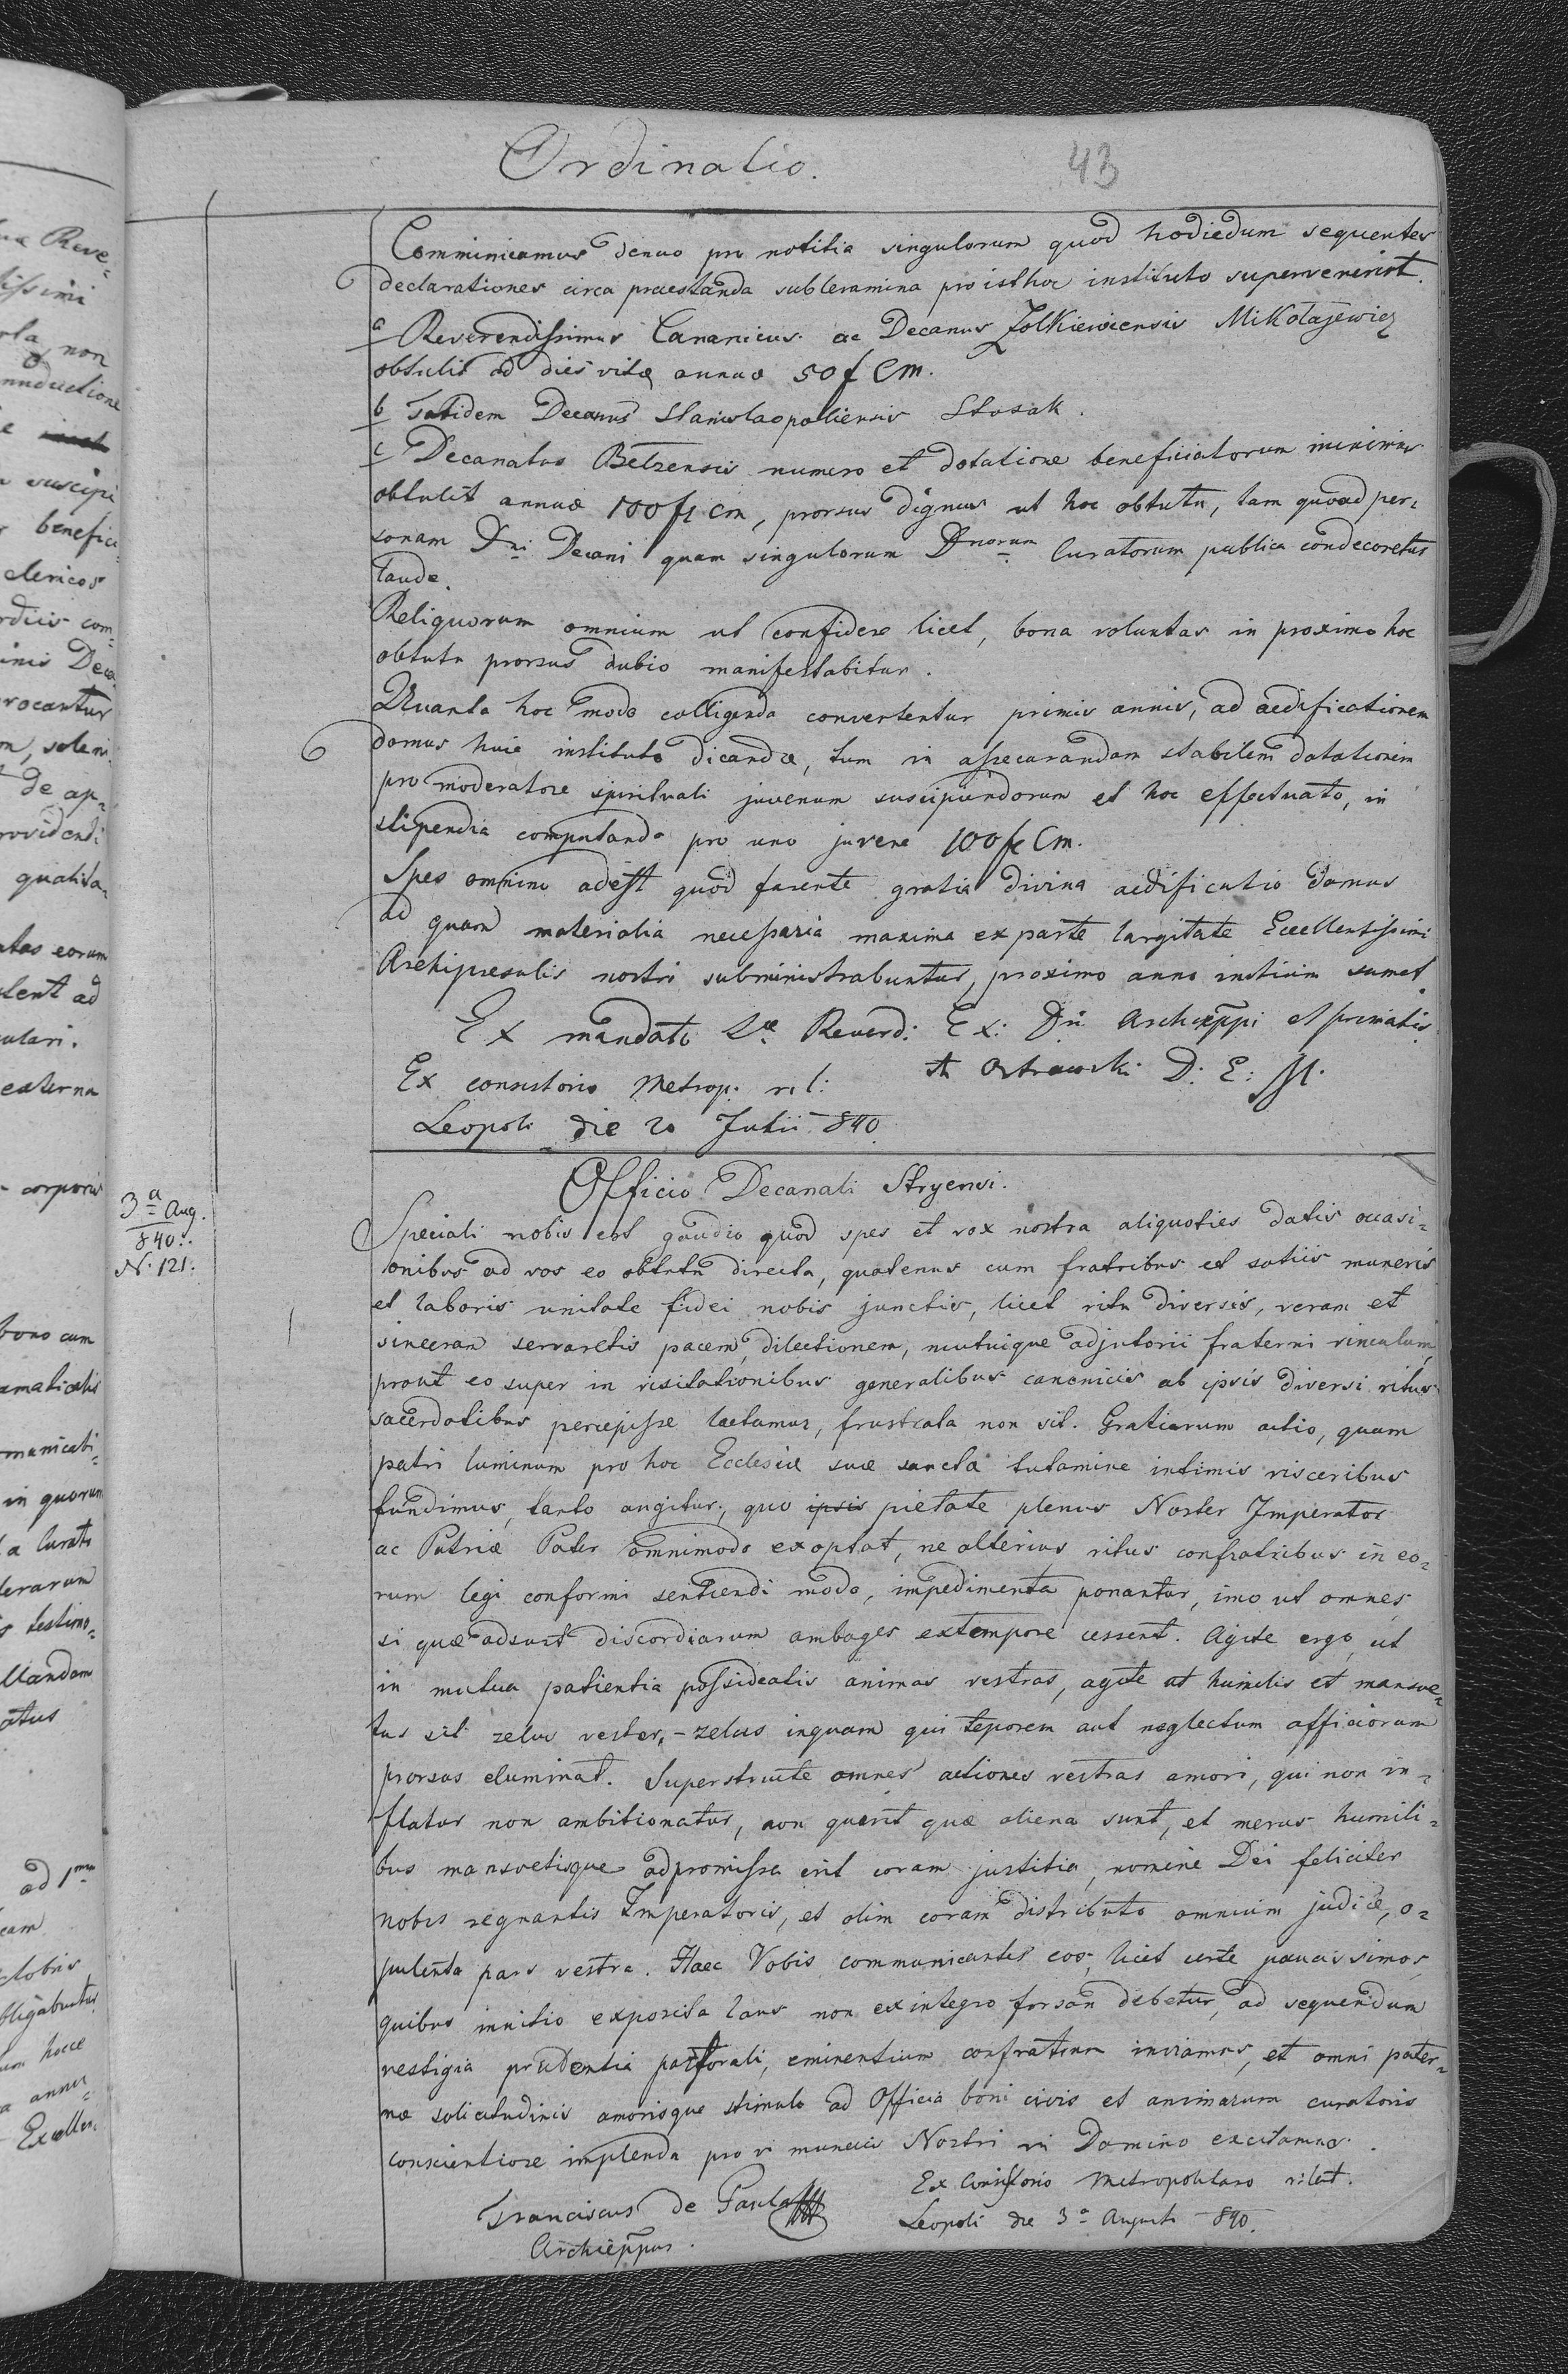 Ordinatio.
43
Comminicamus denuo pro notitia singulorum quod hodiedum sequentes
declarationes circa praestanda sublevamina pro isthoc instituto supervenerint.
a Reverendissimus Cananicus ac Decanus Zolkiewiensis Mikołajewicz
obtulit ad dies vitæ annuo 50 f Cm.
b Totidem Decanus Stanislaopoliensis Stosak.
c Decanatus Belzensis numero et dotatione beneficiatorum minimus
obtulit annuæ 100 fr Cm, prorsus dignus ut hoc obtutu, tam quoad per-
sonam Dni Decani quam singulorum Dnorum Curatorum publica condecoretur
laude.
Reliquorum omnium ut confidere licet, bona voluntas in proximo hoc
obtutu prorsus dubio manifestabitur.
Quanta hoc modo colligenda convertentur primis annis, ad aedificationem
domus huic instituto dicandæ, tum in assecurandam stabilem dotationem
pro moderatore spirituali juvenum suscipiendorum et hoc effectuato, in
stipendia computando pro uno juvene 100 fr Cm.
Spes omnino adest quod favente gratia divina aedificatio domus
ad quam materialia necessaria maxima ex parte largitate Excellentissimi
Archipresulis nostri subministrabuntur, proximo anno initium sumet.
Ex mandato Sæ Reverd: Ex: Dni Archieppi et primatis
Ex consistorio Metrop. r. l: Ostrawski D: E: M.
Leopoli die 20 Julii 840
3a Aug.
840.
N. 121.
Officio Decanali Stryensi.
Speciali nobis est gaudio quod spes et vox nostra aliquoties datis occasi-
onibus ad vos eo obtutu directa, quatenus cum fratribus et sociis muneris
et laboris unitate fidei nobis junctis, licet ritu diversis, veram et
sinceram servaretis pacem, dilectionem, mutuique adjutorii fraterni vinculum,
prout eo super in visitationibus generalibus canonicis ab ipsis diversi ritus
sacerdotibus percepisse laetamur, frustrata non sit. Gratiarum actio, quam
patri luminum pro hoc Ecclesiæ suæ sanctæ tutamine intimis visceribus
fundimus, tanto augitur, quo ipsis pietate plenus Noster Imperator
ac Patriæ Pater omnimodo exoptat, ne alterius ritus confratribus in eo-
rum legi conformi sentiendi modo, impedimenta ponantur, imo ut omnes
si quæ adsunt discordiarum ambages extempore cessent. Agite ergo, ut
in mutua patientia possideatis animas vestras, agite ut humilis et mansue-
tus sit zelus vester, - zelus inquam qui teporem aut neglectum officiorum
prorsus eluminat. Superstruite omnes actiones vestras amori, qui non in-
flatur non ambitionatur, non querit quæ aliena sunt, et merus humili-
bus mansvetisque adpromissa erit coram justitia, nomine Dei feliciter
nobis regnantis Imperatoris, et olim coram distributo omnium judice, o-
pulenta pars vestra. Haec Vobis communicantes eos, licet certe paucissimos,
quibus innitio exposita laus non ex integro forsan debetur, ad sequendum
vestigia prudentia pastorali, eminentium confratrum inviamus, et omni pater-
næ solicitudinis amorisque stimulo ad Officia boni civis et animarum curatoris
conscientiose implenda pro vi muneris Nostri in Domino excitamus.
Franciscus de Paula
Archieppus.
Ex Consistorio Metropolitano r. lat.
Leopoli die 3a Augusti 840.